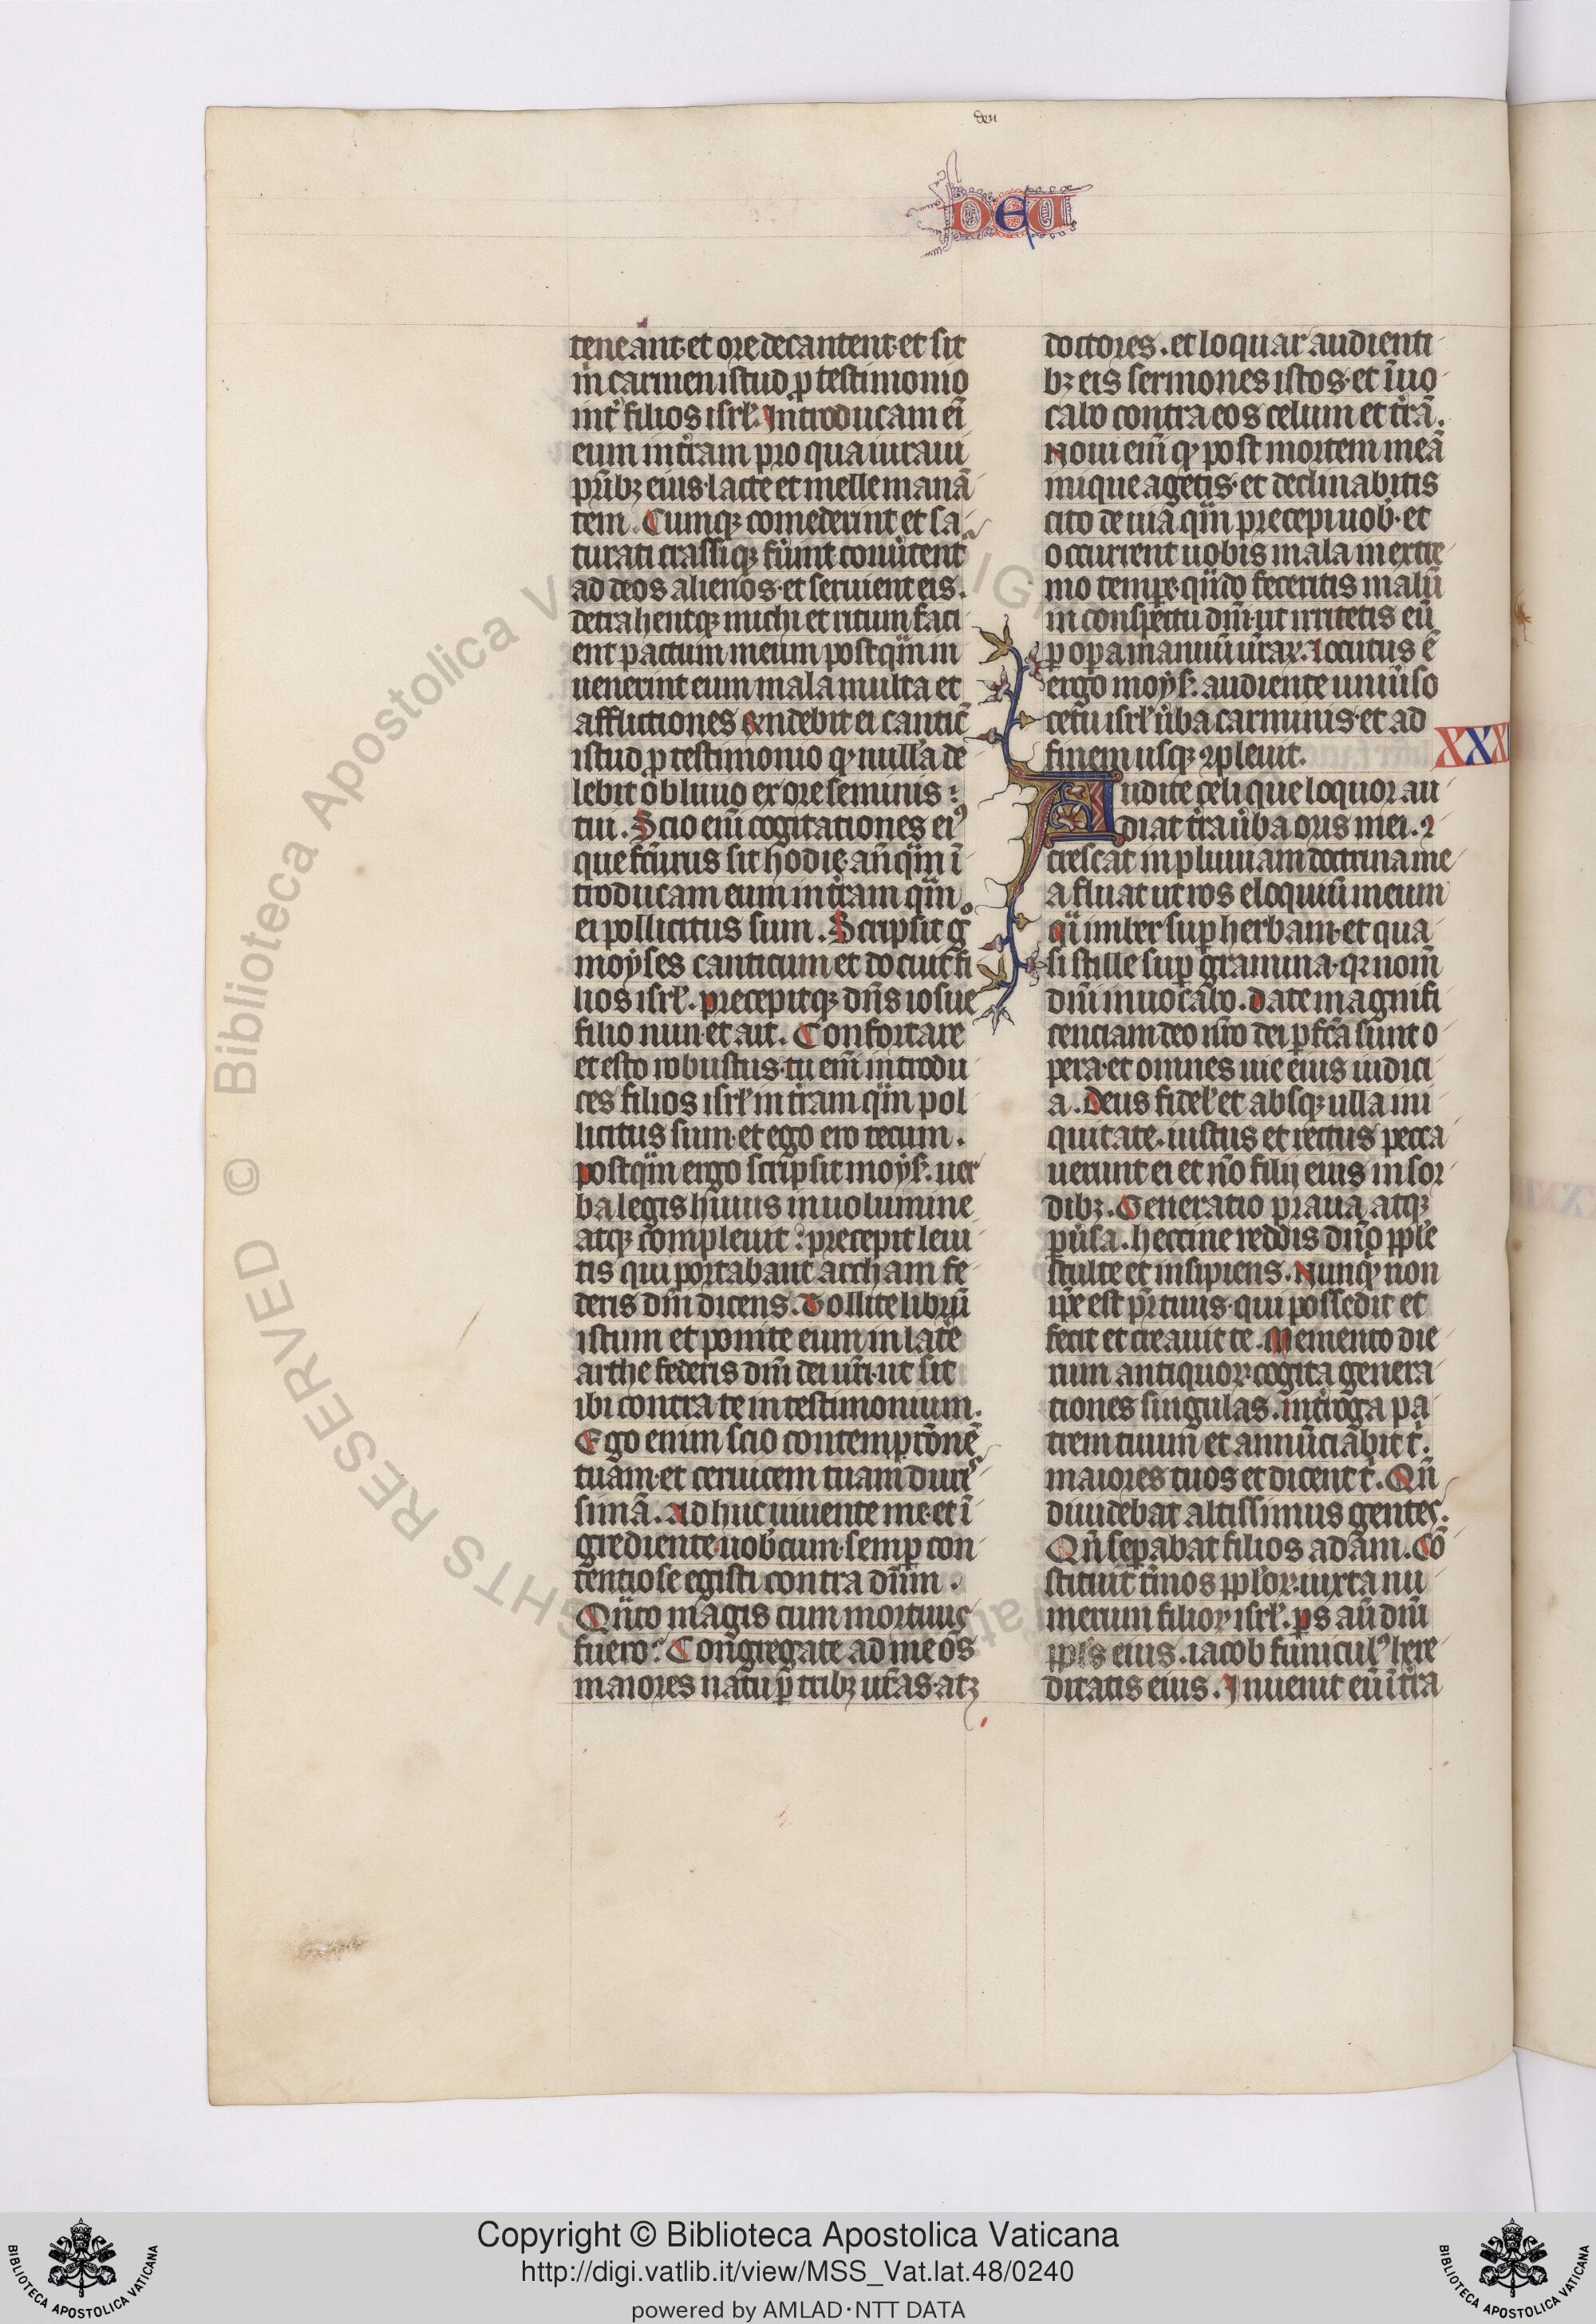 deu
DEU
teneant·et ore decantent·et sit
in carmen istud ꝓ testimonio
int̾ filios isrł. Introducam ei̅
eum in t̾ram pro qua iuraui
pr̅ibꝫ eius·lacte et melle mana̅
tem. Cumqꝫ comederint et sa
turati crassiqꝫ fu̾int·conu̾tent᷑
ad deos alienos·et seruient eis.
detrahentqꝫ michi et ritum faci
ent pactum meum postq̈m in
uenerint eum mala multa et
afflictiones Rn̅debit ei cantic̅
istud ꝓ testimonio qꝫ nulla de
lebit obliuio ex ore seminis :
tui. Scio eni̅ cogitationes ei⁹
que fc̅urus sit hodie·an̅q̈m i̅
troducam eum in t̾ram q̈m
ei pollicitus sum. Scripsit gͦ
moyses canticum et docuit fi
lios isrł. precepitqꝫ dn̅s iosue
filio nun·et ait. Confortare
et esto robustus·tu eni̅ introdu
ces filios isrł in t̾ram q̈m pol
licitus sum·et ego ero tecum.
postq̈m ergo scripsit moyſ. uer
ba legis huius in uolumine
atqꝫ compleuit : precepit leui
tis qui portabant archam fe
deris dn̅i dicens. Tollite libru̅
istum et ponite eum in late̅
arche federis dn̅i dei ur̅i·ut sit
ibi contra te in testimonium.
Ego enim scio contemptōne̅
tuam·et ceruicem tuam duris
sima̅. Ad huc uiuente me·et i̅
grediente·uob̅cum·semꝑ con
tentiose egisti contra dn̅m.
Qn̈to magis cum mortuus
fuero? Congregate ad me om̅s
maiores natu ꝑ tribꝫ ur̅as·atqꝫ
doctores. et loquar audienti
bꝫ eis sermones istos·et i̅uo
cabo contra eos celum et t̾ra̅.
Noui eni̅ qꝫ post mortem mea̅
inique agetis·et declinabitis
cito de uia q̈m precepi uob̅·et
occurrent uobis mala in extre
mo temꝑe·qn̈do feceritis malu̅
in conspectu dn̅i·ut irritetis eu̅
ꝑ oꝑa manuu̅ ur̅aꝝ. Locutus e̅
ergo moyſ. audiente uniu̾so
cetu isrł u̾ba carminis·et ad
finem usqꝫ ꝯpleuit.
XXXI
Audite celi que loquor au
diat t̾ra u̾ba oris mei. ꝯ
crescat in pluuiam doctrina me
a fluat ut ros eloquiu̅ meum
q̈i imber suꝑ herbam·et qua
si stille suꝑ gramina·qꝛ nom̅
dn̅i inuocabo. Date magnifi
centiam deo nr̅o dei ꝑfc̅a sunt o
pera·et omnes uie eius iudici
a. Deus fidel̅ et absqꝫ ulla ini
quitate·iustus et rectus pecca
uerunt ei et no̅ filij eius in sor
dibꝫ. Generatio praua atqꝫ
ꝑu̾sa. heccine reddis dn̅o pp̅le
stulte et insipiens. Nunqꝫ non
ip̅e est pr̅ tuus·qui possedit et
fecit et creauit te. Memento die
rum antiquoꝝ·cogita genera
tiones singulas·int̾roga pa
trem tuum et annu̅ciabit t͛.
maiores tuos et dicent t͛. Qn̅
diuidebat altissimus gentes.
Qn̅ seꝑabat filios adam. Co̅
stituit t̾mos pp̅loꝝ·iuxta nu
merum filioꝝ isrł. ꝑs au̅ dn̅i
pp̅ls eius. iacob funicul⁹ here
ditatis eius. Inuenit eu̅ i̅ t̾ra
Copyright © Biblioteca Apostolica Vaticana
http://digi.vatlib.it/view/MSS_Vat.lat.48/0240
powered by AMLAD·NTT DATA
BIBLIOTECA APOSTOLICA VATICANA
BIBLIOTECA APOSTOLICA VATICANA